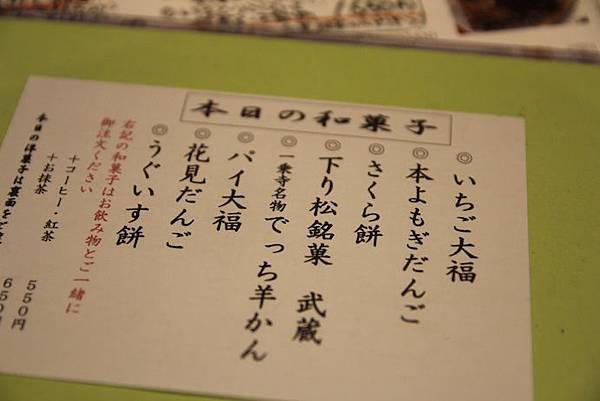 本日の和菓子
◎いちご大福
◎本よもぎだんご
◎さくら餅
◎下り松銘菓 武蔵
◎一乗寺名物でっち羊かん
◎パイ大福
◎花見だんご
◎うぐいす餅
右記の和菓子はお飲み物とご一緒に
御注文ください
+コーヒー・紅茶 550円
+お抹茶 650円
本日の洋菓子は裏面をご